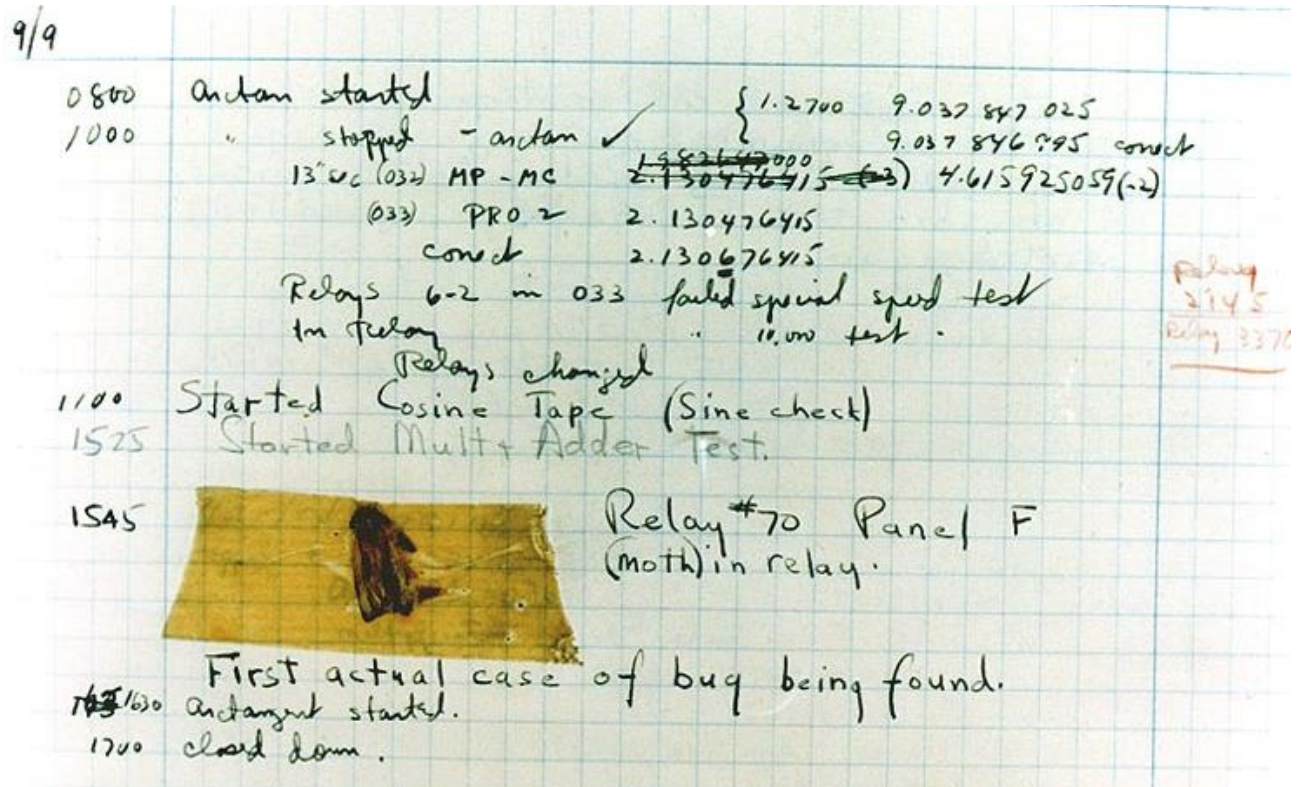 9/9
0800 antan started { 1.2700 9.037 847 025
1000 " stopped - antan ✓ 9.037 846 795 conect
13" uc (032) MP - MC 2.130476415 (-3) 4.615925059(-2)
(033) PRO 2 2.130476415
conect 2.130676415
Relays 6-2 in 033 failed special speed test
In Relay " 10,000 test .
Relay
2145
Relay 3370
Relays changed
1100 Started Cosine Tape (Sine check)
1525 Started Mult + Adder Test.
1545 Relay #70 Panel F
(moth) in relay.
First actual case of bug being found.
1630 antangent started.
1700 closed down .